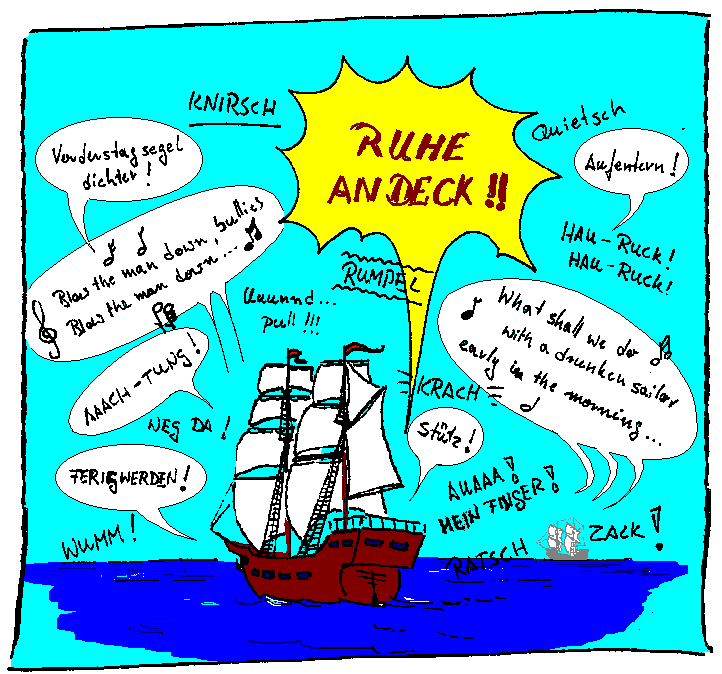 KNIRSCH
RUHE
AN DECK!!
Quietsch
Vorderstagsegel
dichter!
Aufentern!
Blow the man down, bullies
Blow the man down...
HAU-RUCK!
HAU-RUCK!
RUMPEL
Uuuunnd...
pull!!!
What shall we do
with a drunken sailor
early in the morning...
AAACH-TUNG!
KRACH
WEG DA!
Stütz!
FERIGWERDEN!
AUAAA!
MEIN FINGER!
WUMM!
RATSCH
ZACK!